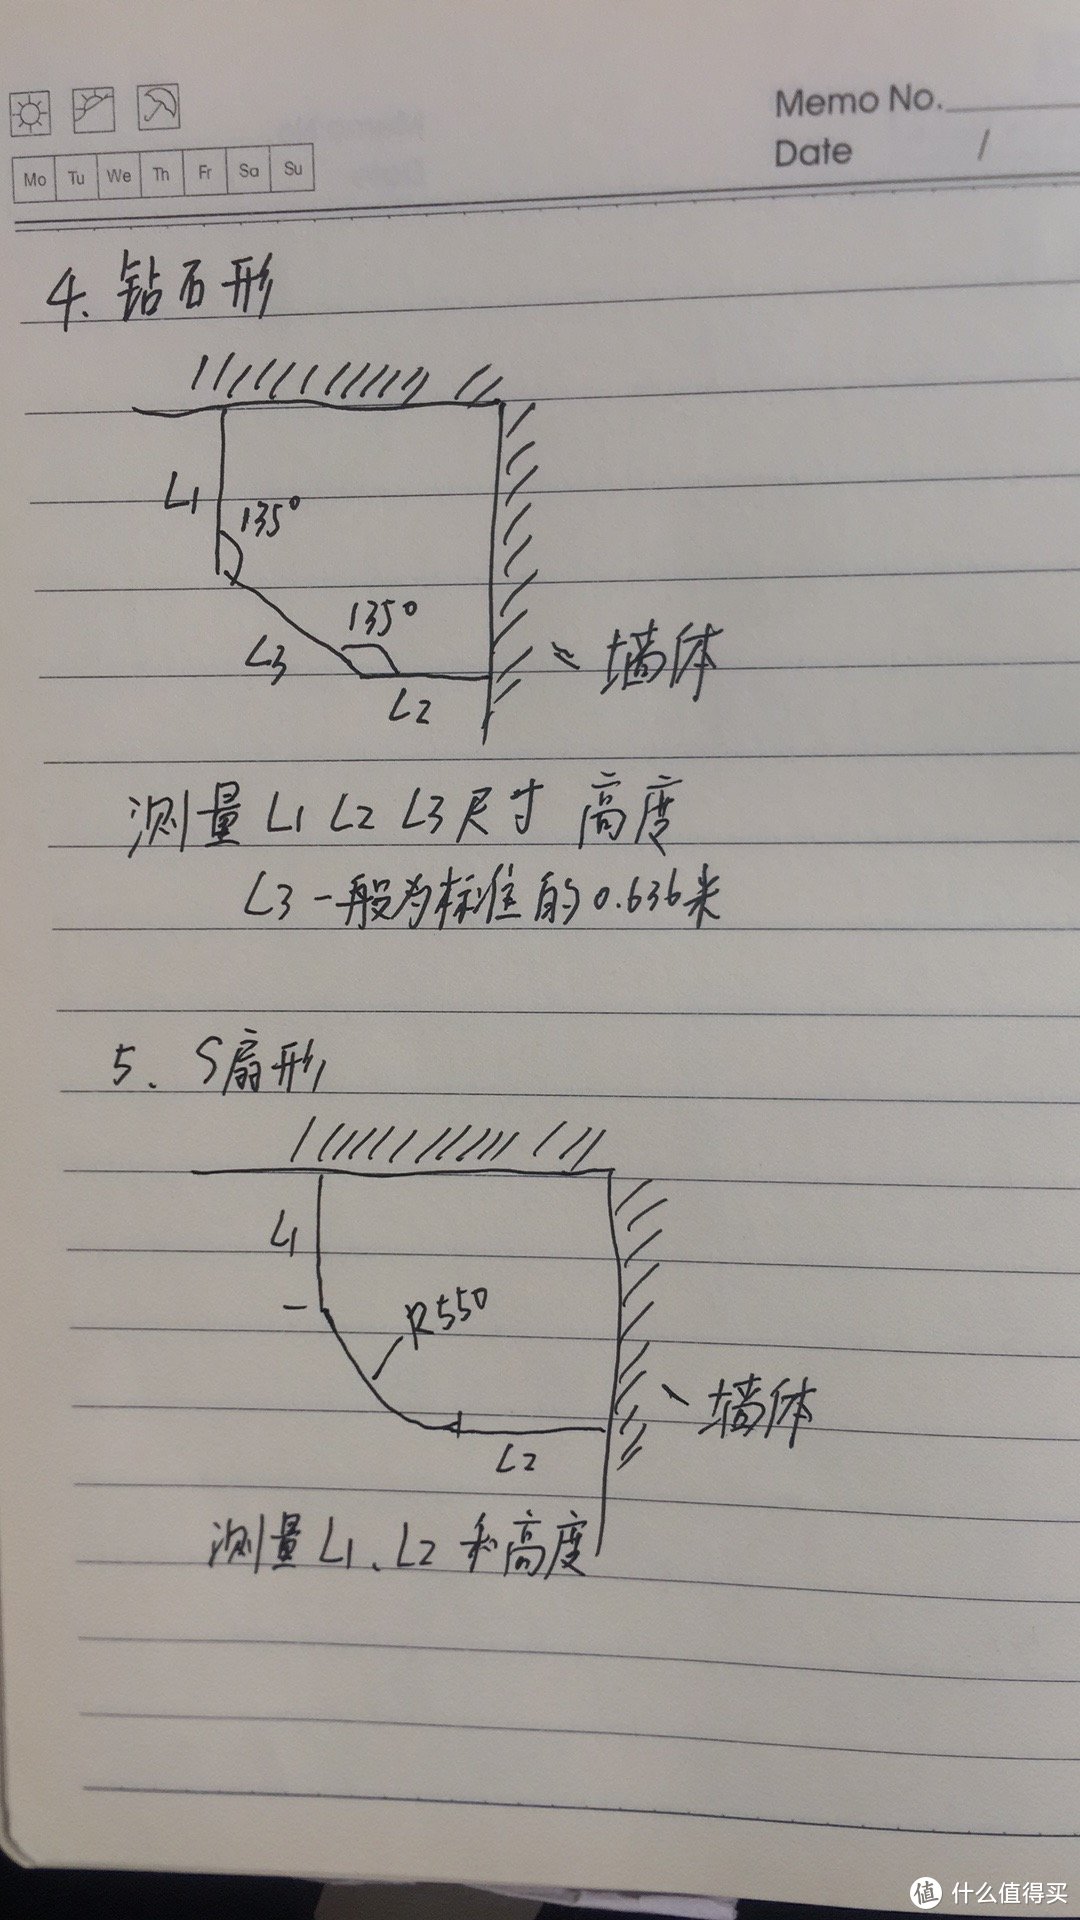 Memo No.
Date /
Mo Tu We Th Fr Sa Su
4. 钻石形
L1
135°
135°
L3
L2
墙体
测量 L1 L2 L3尺寸 高度
L3一般为标准的0.636米
5. S扇形
L1
R550
墙体
L2
测量L1、L2 和高度
值 什么值得买